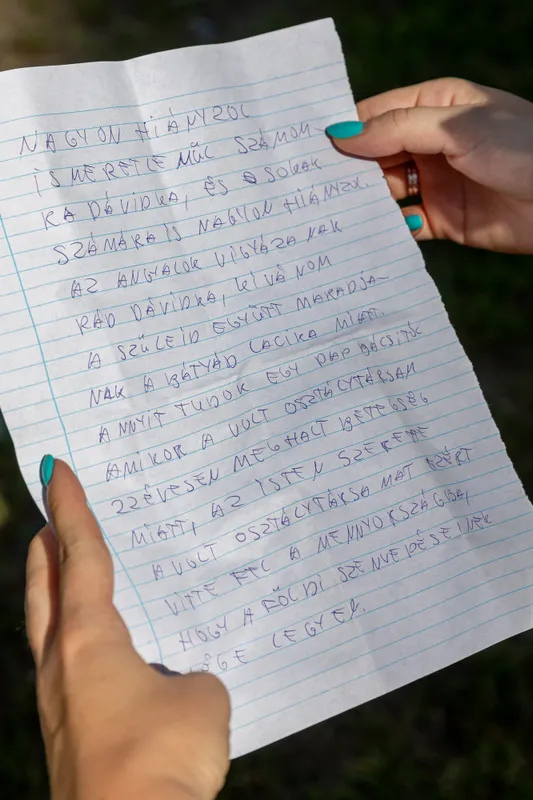 NAGYON HIÁNYZOL
ISMERETLENÜL SZÁMOM-
RA DÁVIDKA, ÉS SOKAK
SZÁMÁRA IS NAGYON HIÁNYZOL.
AZ ANGYALOK VIGYÁZANAK
RÁD DÁVIDKA, KIVÁNOM
A SZÜLEID EGYÜTT MARADJA-
NAK A BÁTYÁD LACIKA MIATT.
ANNYIT TUDOK EGY PAP BÁCSITÓL
AMIKOR A VOLT OSZTÁLYTÁRSAM
22ÉVESEN MEGHALT BETEGSÉG
MIATT, AZ ISTEN SZERETTE
A VOLT OSZTÁLYTÁRSAMAT AZÉRT
VITTE FEL A MENNYORSZÁGBA,
HOGY A FÖLDI SZENVEDÉSEINEK
VÉGE LEGYEN.